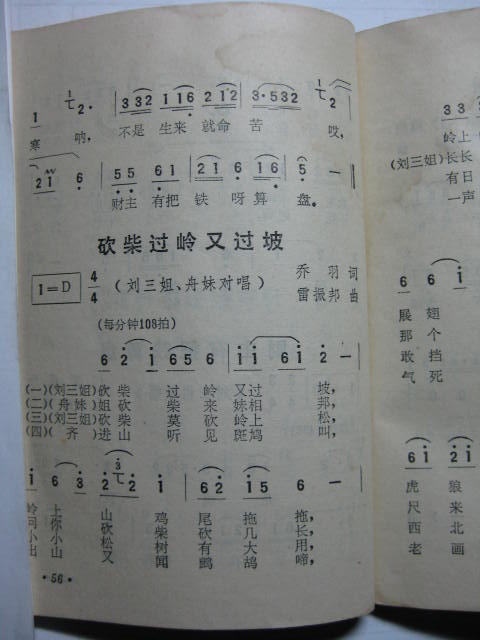 1 2· 332 116 212 3·532 2
寒 呐, 不是 生来 就命 苦 哎,
21 6 55 61 21 6 16 5 —
财主 有把 铁 呀算 盘。
砍柴过岭又过坡
1=D 4/4 (刘三姐、舟妹对唱) 乔羽 词
雷振邦 曲
(每分钟108拍)
6 2 1 6 5 6 1 1 6 1 2 —
(一)(刘三姐)砍 柴 过 岭 又过 坡,
(二)(舟妹)姐 砍 柴 来 妹相 邦,
(三)(刘三姐)砍 柴 莫 砍 岭上 松,
(四)(齐)进 山 听 见 斑鸠 叫,
1 6 3 2 2 1 6 2 1 5 6 —
岭 上 山 鸡 尾 拖 拖,
问 你 砍 柴 砍 几 长,
小 小 松 树 有 大 用,
出 山 又 闻 鹧 鸪 啼,
·56·
3 3
岭上
(刘三姐)长长
有日
一声
6 6 1
展 翅
那 个
敢 挡
气 死
6 1 2 1
虎 狼
尺 来
西 北
老 画